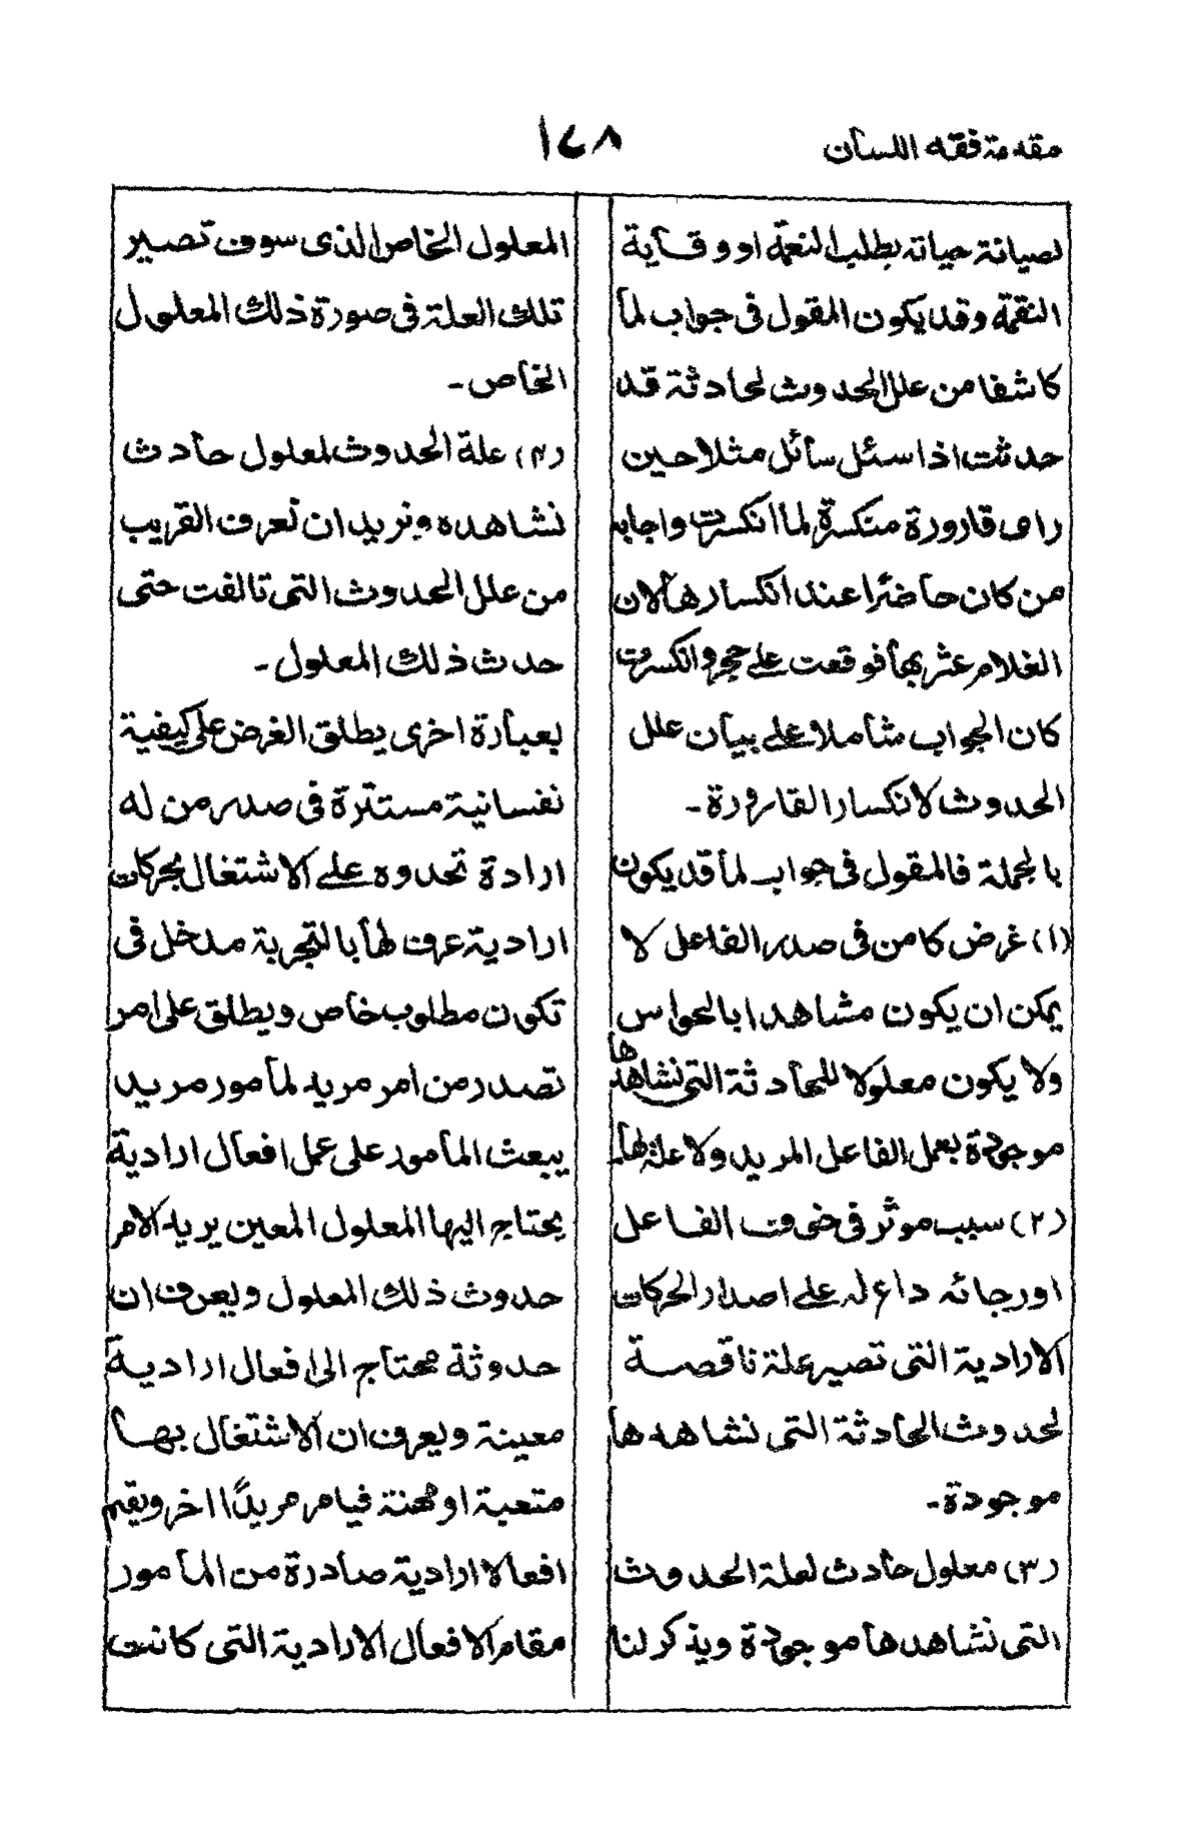 مقدمة فقه اللسان
١٤٨
لصيانة حياته بطلب النعمة او وقاية
النقمة وقد يكون المقول فى جواب لما
كاشفا من علل الحدوث لحادثة قد
حدثت اذا سئل سائل مثلا حين
راى قارورة منكسرة لما انكسرت واجابه
من كان حاضرا عند انكسارها لان
الغلام عثر بها فوقعت على حجر وانكسرت
كان الجواب شاملا على بيان علل
الحدوث لانكسار القارورة ۔
بالجملة فالمقول فى جواب لما قد يكون
(١) غرض كامن فى صدر الفاعل لا
يمكن ان يكون مشاهدا بالحواس
ولا يكون معلولا للحادثة التى نشاهدها
موجودة بعمل الفاعل المريد ولا علة لها۔
(٢) سبب موثر فى خوف الفاعل
او رجائه داع له على اصدار الحركات
الارادية التى تصير علة ناقصة
لحدوث الحادثة التى نشاهدها
موجودة۔
(٣) معلول حادث لعلة الحدوث
التى نشاهدها موجودة ويذكر لنا
المعلول الخاص الذى سوف تصير
تلك العلة فى صورة ذلك المعلول
الخاص ۔
(۴) علة الحدوث لمعلول حادث
نشاهده ونريد ان نعرف القريب
من علل الحدوث التى تالفت حتى
حدث ذلك المعلول ۔
بعبارة اخرى يطلق الغرض على كيفية
نفسانية مستترة فى صدر من له
ارادة تحدوه على الاشتغال بحركات
ارادية عرف لها بالتجربة مدخل فى
تكون مطلوب خاص ويطلق على امر
تصدر من امر مريد لمأمور مريد
يبعث المأمور على عمل افعال ارادية
يحتاج اليها المعلول المعين يريد الامر
حدوث ذلك المعلول ويعرف ان
حدوثة محتاج الى افعال ارادية
معينة ويعرف ان الاشتغال بها
متعبة او محنة فيامر مريدًا اخر ويقيم
افعالا ارادية صادرة من المأمور
مقام الافعال الارادية التى كانت